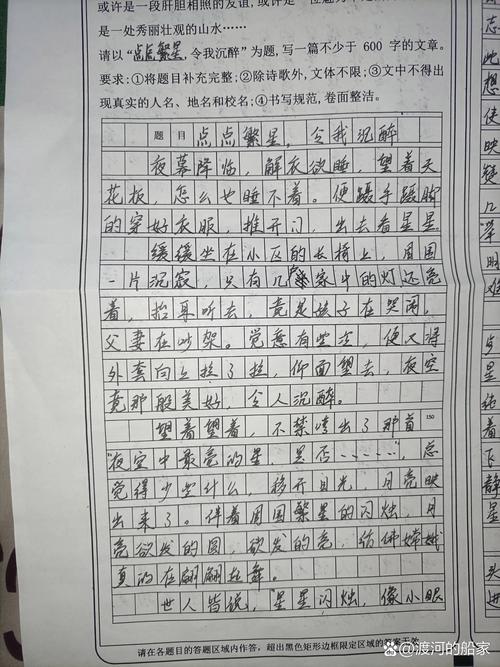 或许是一段肝胆相照的友谊，或许是一
是一处秀丽壮观的山水……
请以“点点繁星，令我沉醉”为题，写一篇不少于 600 字的文章。
要求：①将题目补充完整；②除诗歌外，文体不限；③文中不得出
现真实的人名、地名和校名；④书写规范，卷面整洁。
题目 点点繁星，令我沉醉
夜幕降临，解衣欲睡，望着天
花板，怎么也睡不着。便蹑手蹑脚
的穿好衣服，推开门，出去看星星。
缓缓坐在小区的长椅上，周围
一片沉寂，只有几家中的灯还亮
着，抬耳听去，竟是孩子在哭闹，
父妻在吵架。觉意有些凉，便又将
外套向上拉了拉，仰面望去，夜空
竟那般美好，令人沉醉。
望着望着，不禁唱出了那首
150
“夜空中最亮的星，是否……，总
觉得少些什么，移开目光，月亮映
出来了。伴着周围繁星的闪烛，月
亮欲发的圆，欲发的亮，仿佛嫦娥
真的在翩翩起舞。
世人皆说，“星星闪烛，像小眼
请在各题目的答题区域内作答，超出黑色矩形边框限定区域的答案无效
志
此
想
使
映
疑
几
深
明
难
步
星
佑
着
飞
静
星
头
进
@渡河的船家